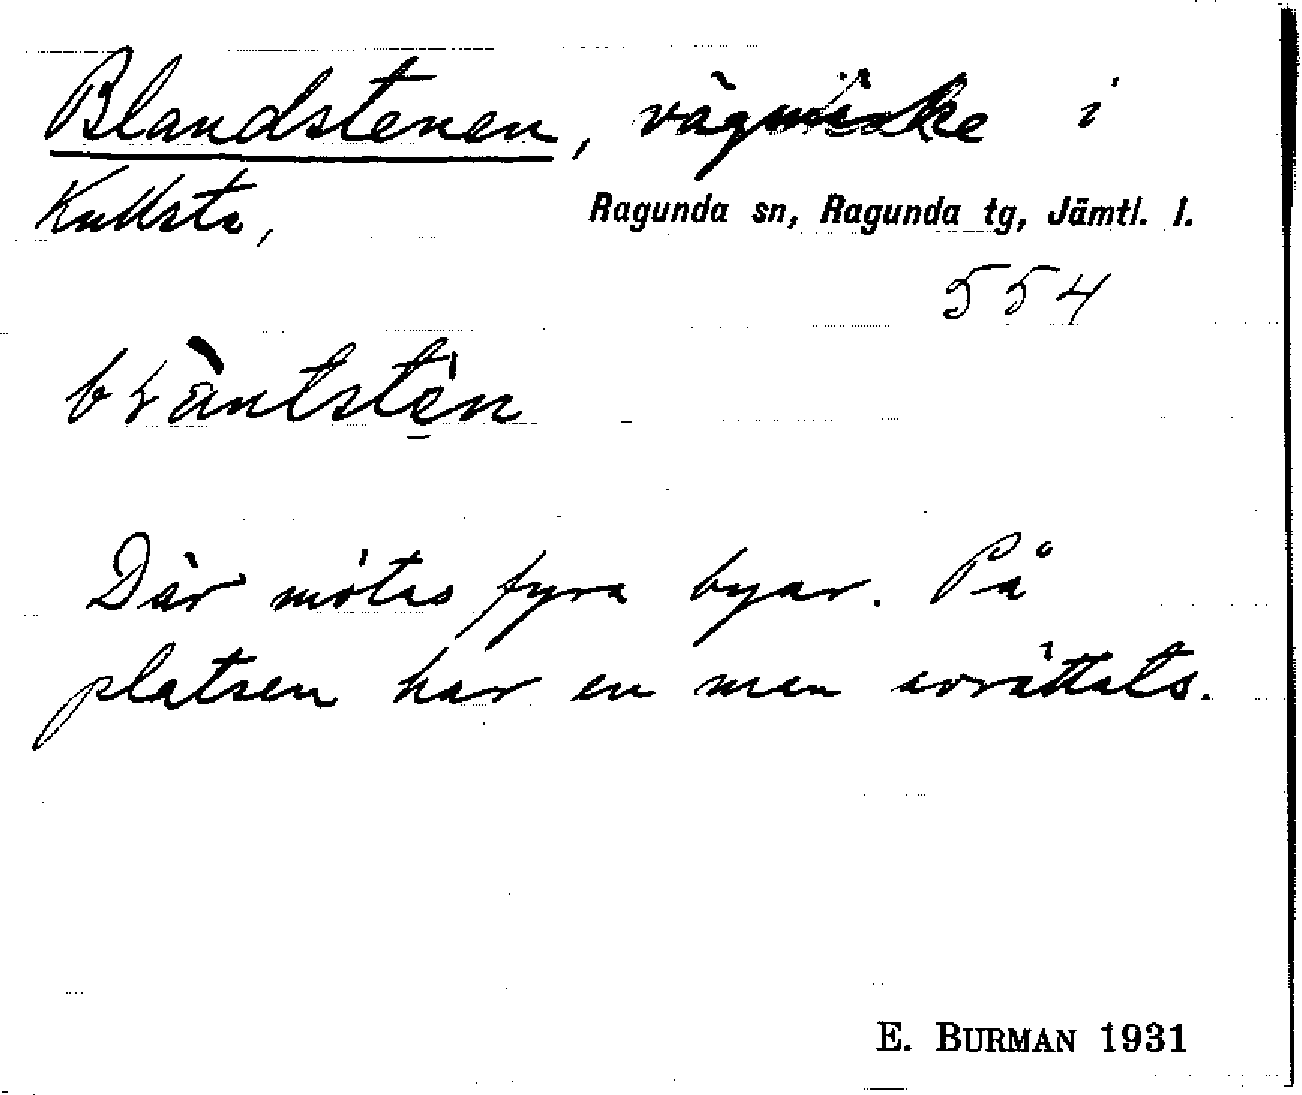 Blandstenen, vägmärke i
Kullsta,
Ragunda sn, Ragunda tg, Jämtl. l.
554
Där mötas fyra byar. På
platsen har en men avrättats.
E. BURMAN 1931